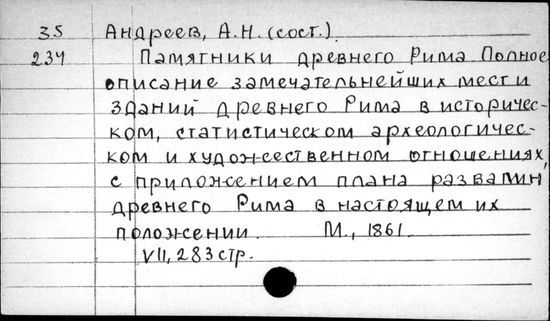 35 Андреев, А.Н. (сост.)
234 Памятники древнего Рима. Полное
описание замечательнейших мест и
зданий древнего Рима в историчес-
ком, статистическом археологичес-
ком и художественном отношениях,
с приложением плана развалин
древнего Рима в настоящем их
положении. М., 1861.
VII, 283 стр.